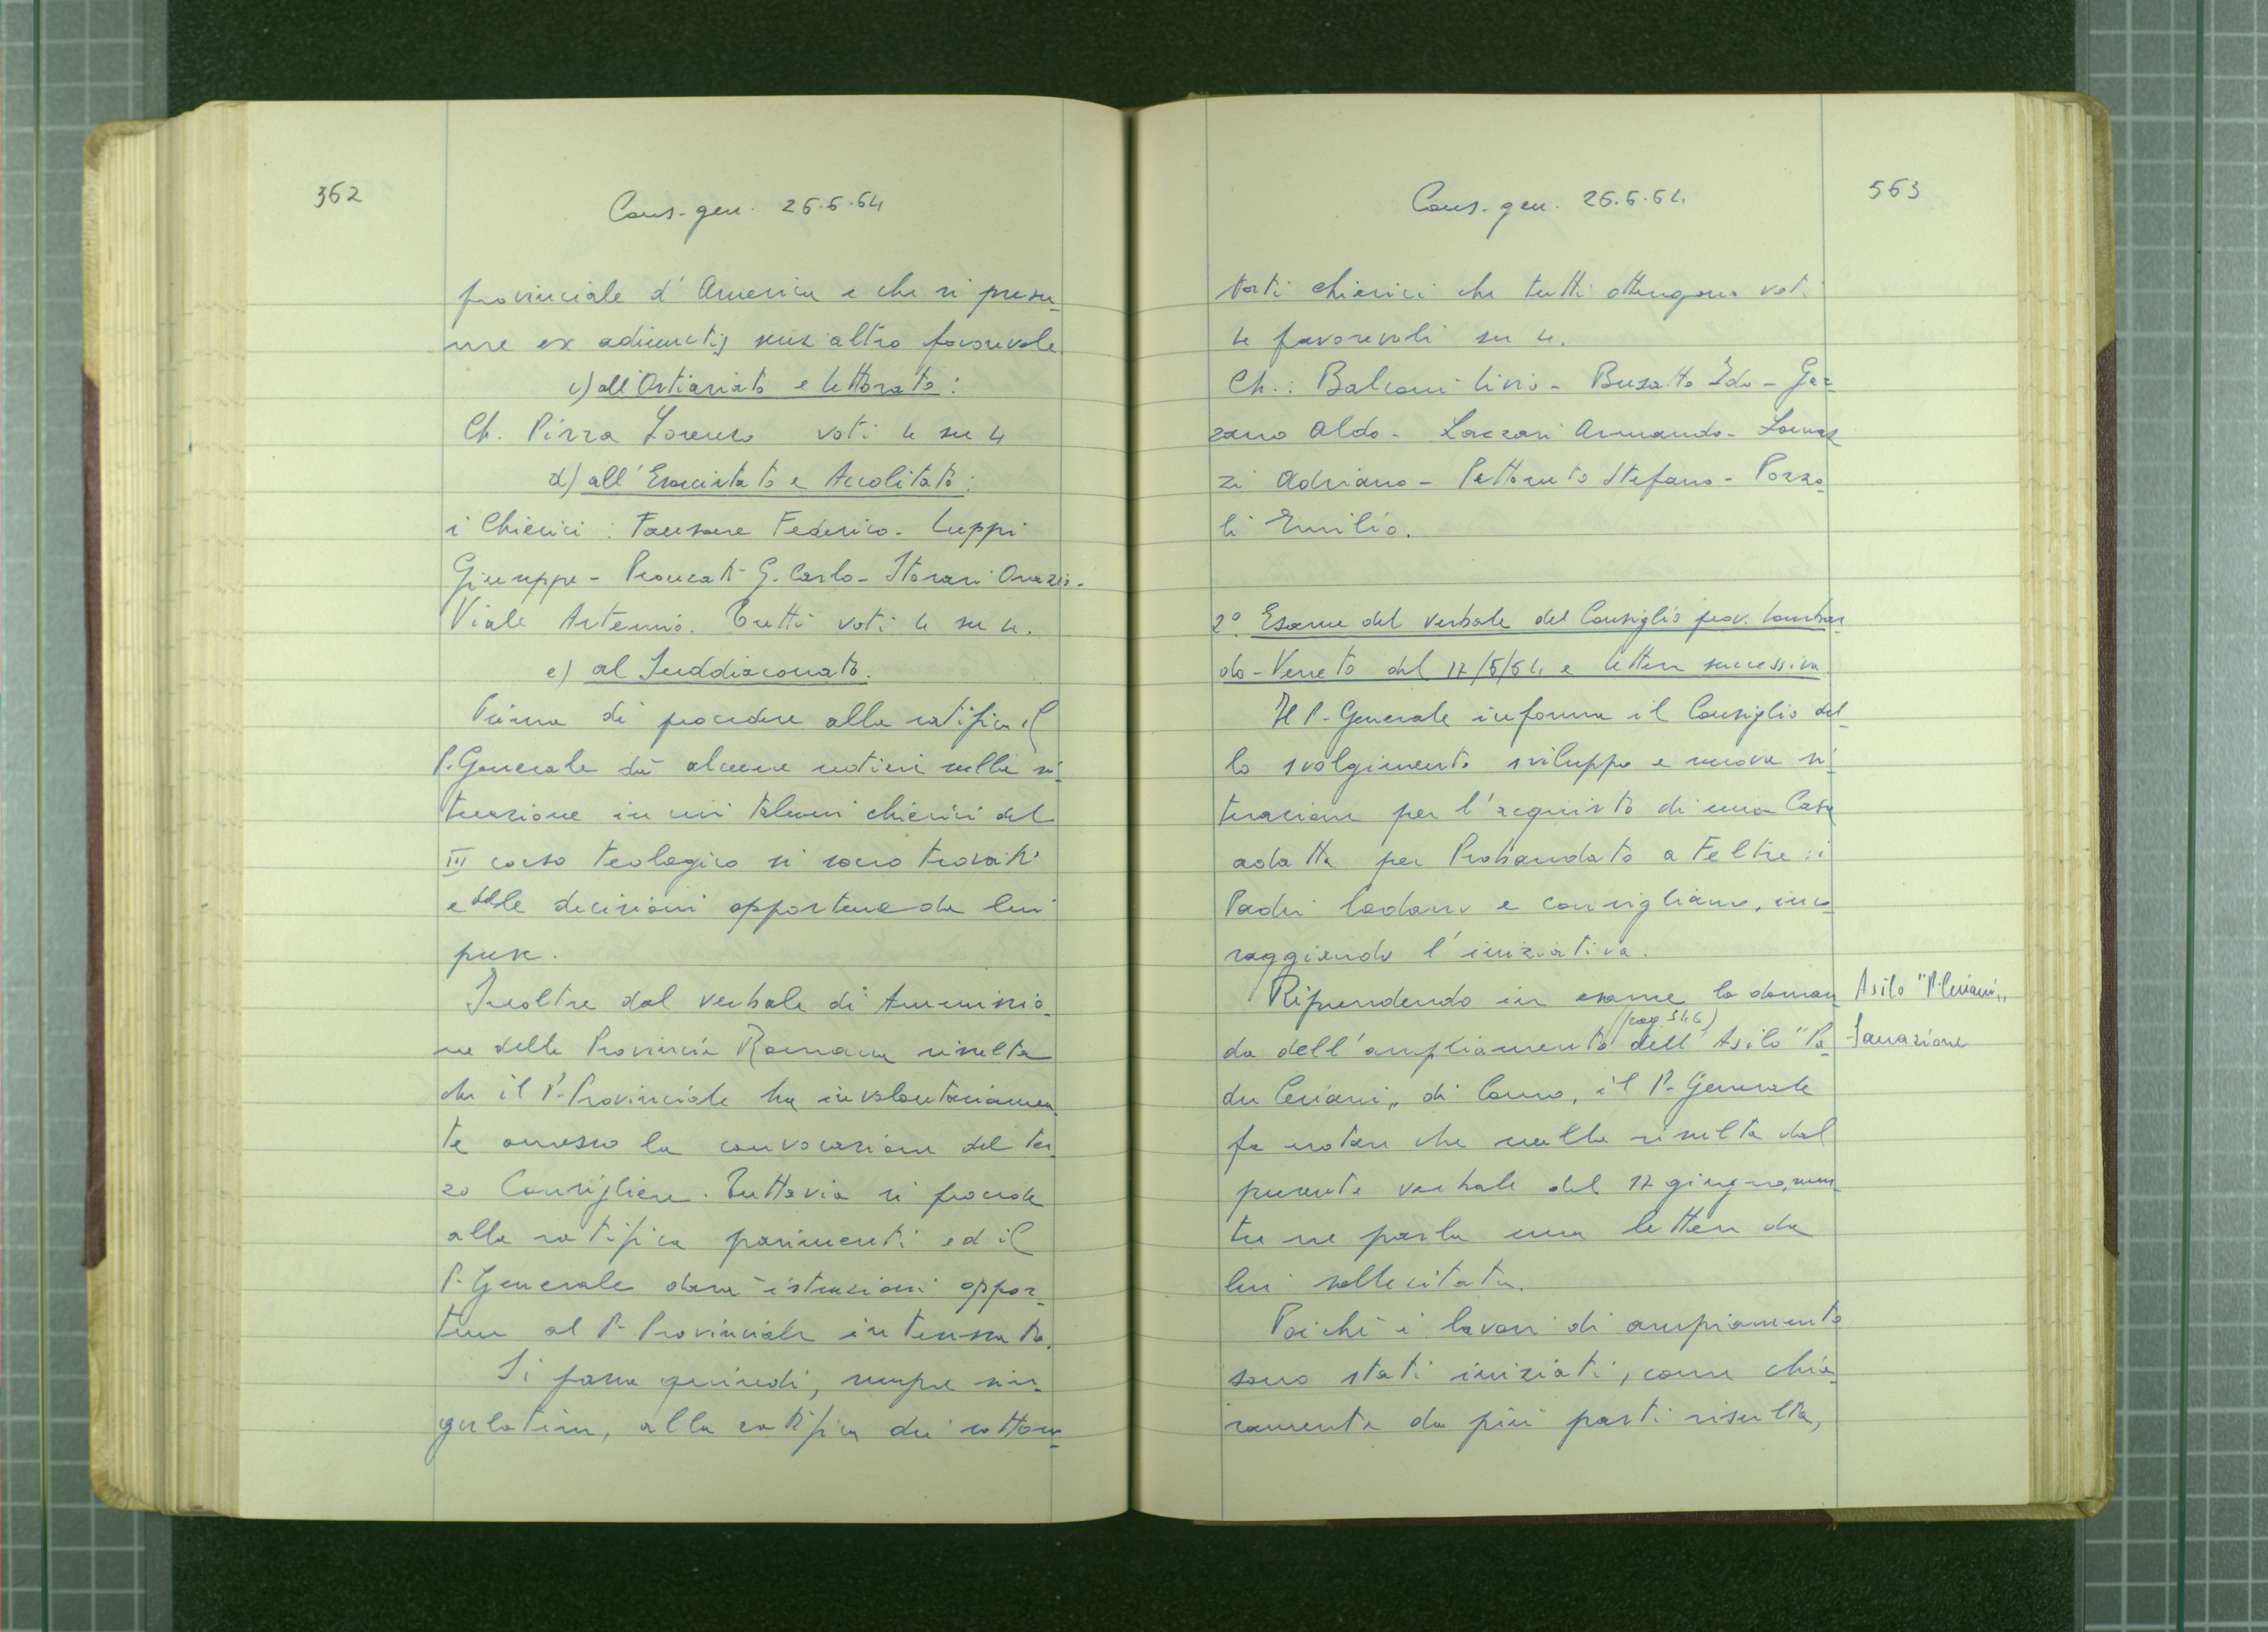 362
Cons. gen. 26.6.64
provinciale d'America e che si presu-
me ex adiunctis senz'altro favorevole
c) all'Ostiariato e lettorato:
Ch. Pizza Lorenzo voti 4 su 4
d) all'Esorcistato e Accolitato:
i Chierici: Fansone Federico - Luppi
Giuseppe - Pronzati G. Carlo - Storari Orazio -
Viale Artemio. Tutti voti 4 su 4.
e) al Suddiaconato.
Prima di procedere alla ratifica il
P. Generale dà alcune notizie sulla si-
tuazione in cui taluni chierici del
III corso teologico si sono trovati
e delle decisioni opportune da lui
prese.
Inoltre dal verbale di Ammissio-
ne della Provincia Romana risulta
che il P. Provinciale ha involontariamen-
te omesso la convocazione del ter-
zo Consigliere. Tuttavia si procede
alla ratifica parimenti ed il
P. Generale darà istruzioni oppor-
tune al P. Provinciale interessato.
Si passa quindi, sempre sin-
gulatim, alla ratifica dei sottono-
563
Cons. gen. 26.6.64.
tati chierici che tutti ottengono voti
4 favorevoli su 4.
Ch.: Balconi Livio - Busatto Edo - Ger-
zano Aldo - Lazzari Armando - Lomaz-
zi Adriano - Pettoruto Stefano - Pozzo-
li Emilio.
2° Esame del verbale del Consiglio prov. Lombar-
do-Veneto del 17/6/64 e lettera successiva
Il P. Generale informa il Consiglio del-
lo svolgimento sviluppo e nuova si-
tuazione per l'acquisto di una Casa
adatta per Probandato a Feltre: i
Padri lodano e consigliano, inco-
raggiando l'iniziativa.
Riprendendo in esame la doman-
Asilo "P. Ceriani"
(pag. 546)
da dell'ampliamento dell'Asilo "Pa-
Sanazione
dre Ceriani" di Como, il P. Generale
fa notare che nulla risulta dal
presente verbale del 17 giugno, men-
tre ne parla una lettera da
lui sollecitata.
Poichè i lavori di ampiamento
sono stati iniziati, come chia-
ramente da più parti risulta,